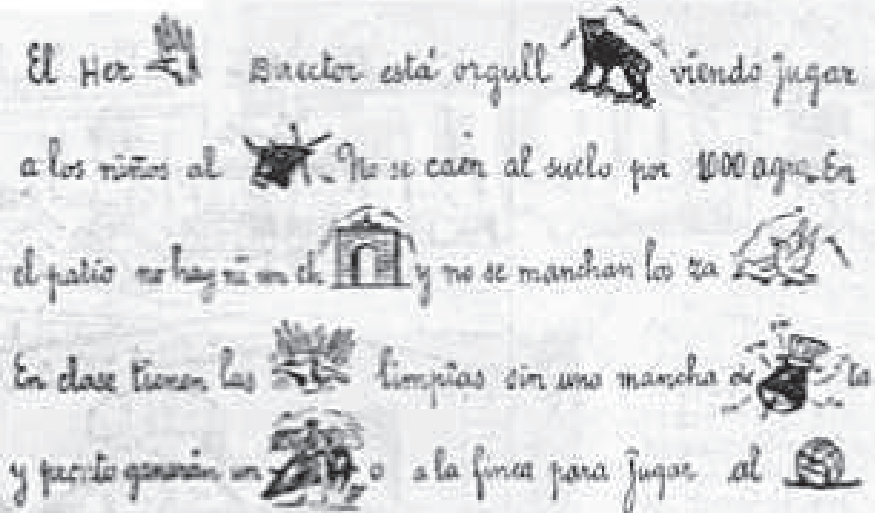 El Her Director está orgull viendo jugar
a los niños al . No se caen al suelo por 1000 agro. En
el patio no hay ni un ch y no se manchan los za
En clase tienen las limpias sin una mancha de ta
y pronto ganarán un o a la finca para jugar al